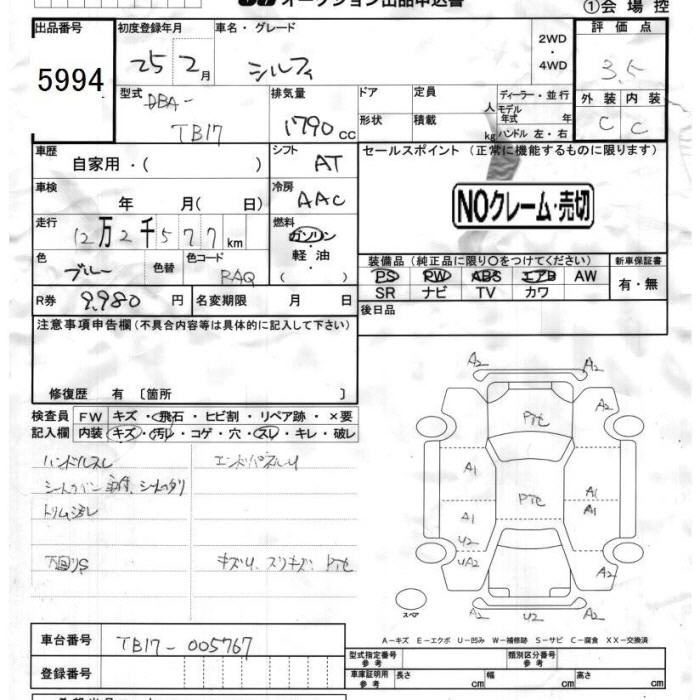 オークション出品申込書
①会場控
出品番号
5994
初度登録年月
25 2月
車名・グレード
シルフィ
2WD
・
4WD
評価点
3.5
型式
DBA-
TB17
排気量
1790 cc
ドア
定員
人
形状
積載
kg
ディーラー・並行
モデル年式 年
ハンドル 左・右
外装 内装
C C
車歴
自家用・( )
シフト
AT
セールスポイント (正常に機能するものに限ります)
NOクレーム・売切
車検
年 月( 日)
冷房
AAC
走行
12万2千577km
燃料
ガソリン
・
軽油
・
( )
色
ブルー
色替
色コード
RAQ
装備品(純正品に限り○をつけてください)
PS PW ABS エアB AW
SR ナビ TV カワ
新車保証書
有・無
R券
9,980 円
名変期限 月 日
後日品
注意事項申告欄(不具合内容等は具体的に記入して下さい)
修復歴 有〔箇所 〕
検査員
記入欄
FW キズ・飛石・ヒビ割・リペア跡・×要
内装 キズ・汚レ・コゲ・穴・スレ・キレ・破レ
ハンドルスレ
エンドパネルU
トリム汚レ
下回りS
キズU、スリキズ、Ptc
A2 A2
A2 Ptc A2
A1 Ptc A1
A1 A1
U2
UA2
A2
A2 U2 A2
スペア
A−キズ E−エクボ U−凹み W−補修跡 S−サビ C−腐食 XX−交換済
車台番号
TB17-005767
登録番号
型式指定番号
参考
類別区分番号
参考
車庫証明用
参考
長さ cm 幅 cm 高さ cm